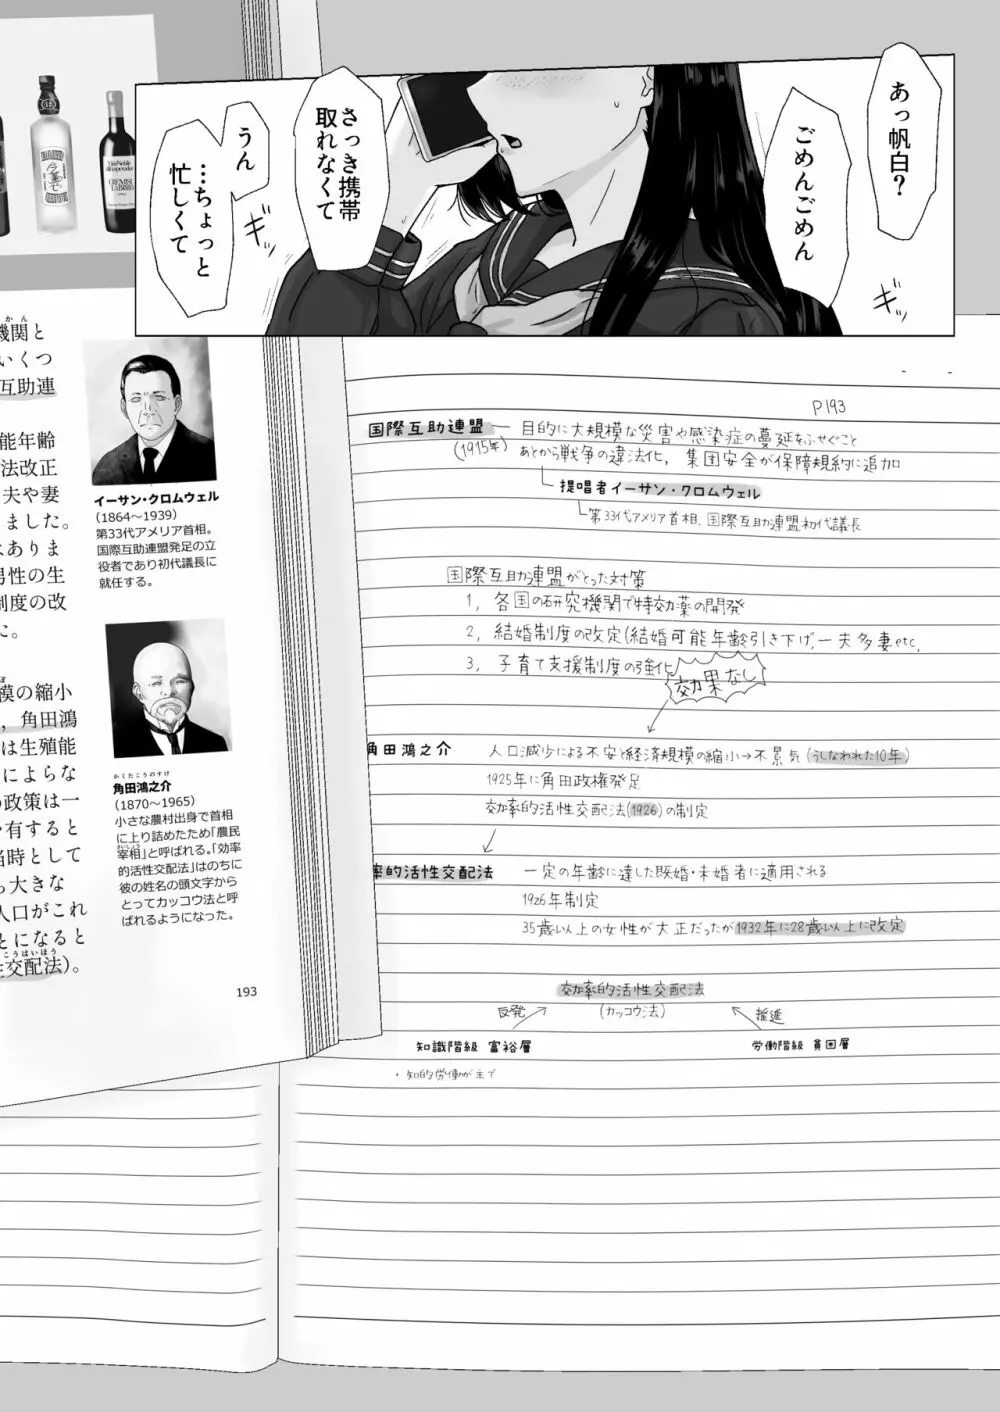 あっ帆白？
ごめんごめん
さっき携帯
取れなくて
うん
…ちょっと
忙しくて
ギッ
ギッ
機関と
かん
いくつ
互助連
能年齢
法改正
夫や妻
ました。
はありま
男性の生
制度の改
た。
模の縮小
、角田鴻
は生殖能
によらな
の政策は一
を有すると
当時として
ら大きな
人口がこれ
とになると
こうはいほう
性交配法)。
イーサン・クロムウェル
（1864〜1939）
第33代アメリア首相。
国際互助連盟発足の立
役者であり初代議長に
就任する。
かくたこうのすけ
角田鴻之介
（1870〜1965）
小さな農村出身で首相
に上り詰めたため「農民
さいしょう
宰相」と呼ばれる。「効率
的活性交配法」はのちに
彼の姓名の頭文字から
とってカッコウ法と呼
ばれるようになった。
193
P193
国際互助連盟 ― 目的に大規模な災害や感染症の蔓延をふせぐこと
(1915年) あとから戦争の違法化，集団安全が保障規約に追加
提唱者イーサン・クロムウェル
第33代アメリア首相、国際互助連盟初代議長
国際互助連盟がとった対策
1, 各国の研究機関で特効薬の開発
2, 結婚制度の改定(結婚可能年齢引き下げ,一夫多妻etc,
3, 子育て支援制度の強化
効果なし
角田鴻之介 人口減少による不安と経済規模の縮小→不景気(うしなわれた10年)
1925年に角田政権発足
効率的活性交配法(1926)の制定
率的活性交配法 一定の年齢に達した既婚・未婚者に適用される
1926年制定
35歳以上の女性が大正だったが1932年に28歳以上に改定
効率的活性交配法
(カッコウ法)
反発
推進
知識階級 富裕層
労働階級 貧困層
・知的労働が主で